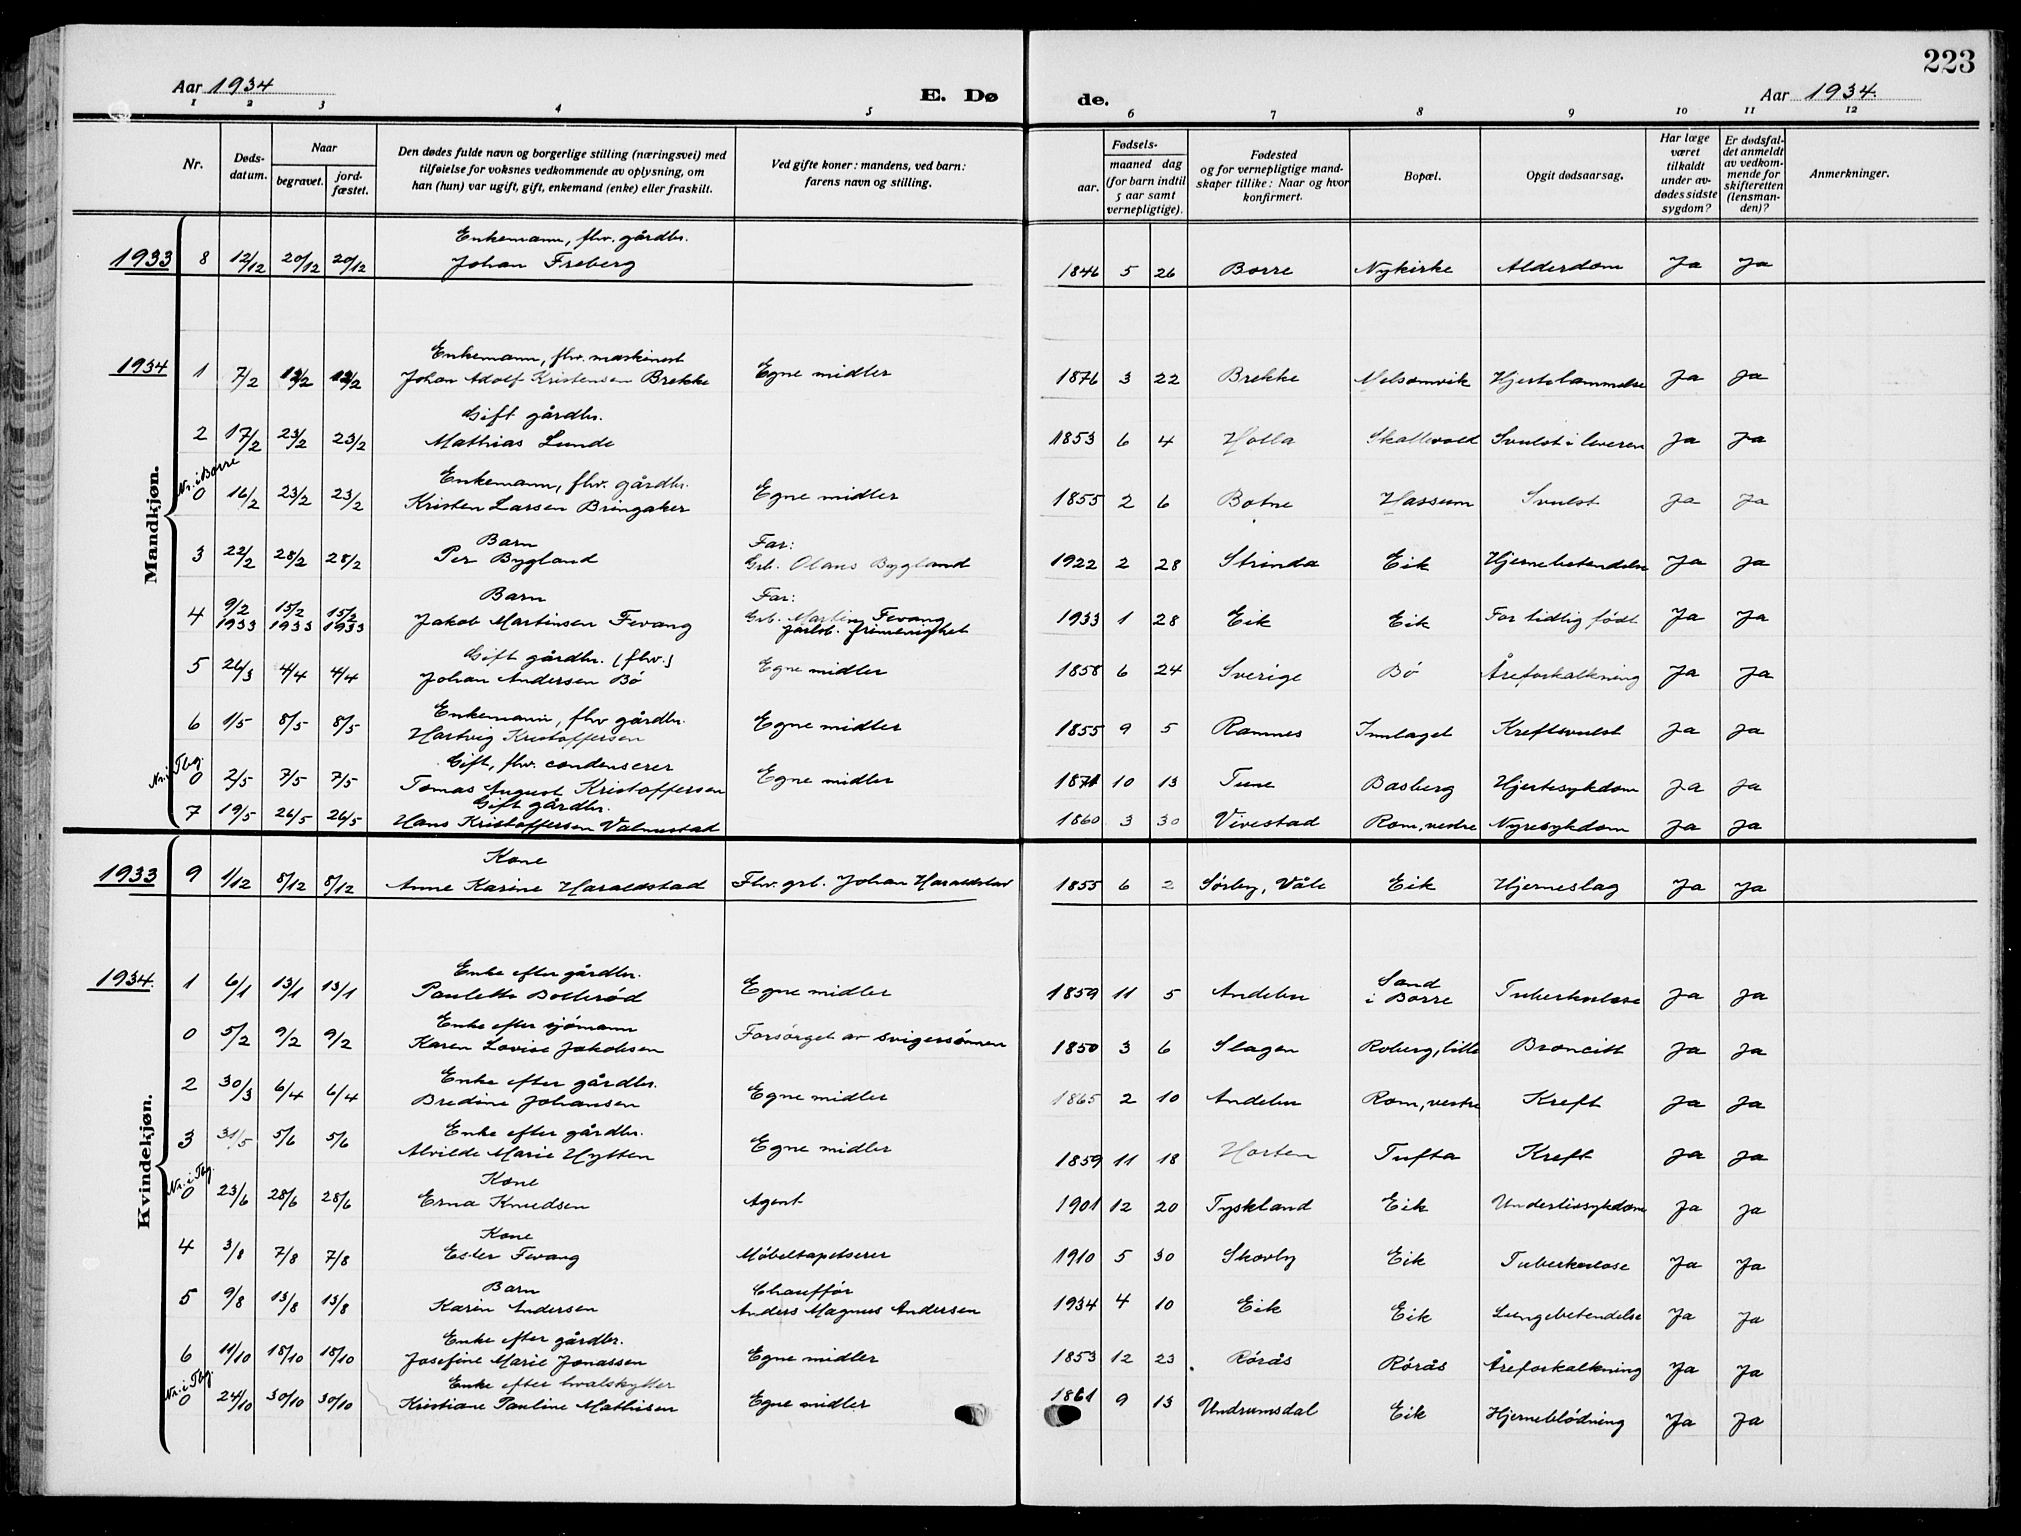 223
Aar 1934
E. Døde.
Aar 1934.
1 2 3 4 5 6 7 8 9 10 11 12
Nr.
Døds-
datum.
Naar
begravet.
jord-
fæstet.
Den dødes fulde navn og borgerlige stilling (næringsvei) med
tilføielse for voksnes vedkommende av oplysning, om
han (hun) var ugift, gift, enkemand (enke) eller fraskilt.
Ved gifte koner: mandens, ved barn:
farens navn og stilling.
Fødsels-
aar.
maaned dag
(for barn indtil
5 aar samt
vernepligtige).
Fødested
og for vernepligtige mand-
skaper tillike: Naar og hvor
konfirmert.
Bopæl.
Opgit dødsaarsag.
Har læge
været
tilkaldt
under av-
dødes sidste
sygdom?
Er dødsfal-
det anmeldt
av vedkom-
mende for
skifteretten
(lensman-
den)?
Anmerkninger.
Mandkjøn.
Enkemann, fhv. gårdbr.
1933 8 12/12 20/12 20/12 Johan Freberg 1846 5 26 Borre Nykirke Alderdom Ja Ja
Enkemann, fhv. maskinest
1934 1 7/2 13/2 13/2 Johan Adolf Kristensen Brekke Egne midler 1876 3 22 Brekke Melsomvik Hjertelammelse Ja Ja
Gift gårdbr.
2 17/2 23/2 23/2 Mathias Lunde 1853 6 4 Holla Skallevold Svulst i leveren Ja Ja
Nr. i Borre Enkemann, fhv. gårdbr.
0 16/2 23/2 23/2 Kristen Larsen Bringaker Egne midler 1855 2 6 Botne Hassum Svulst Ja Ja
Barn Far:
3 22/2 28/2 28/2 Per Bygland Grb. Olaus Bygland 1922 2 28 Strinda Eik Hjernebetendelse Ja Ja
Barn Far:
4 9/2 1933 15/2 1933 15/2 1933 Jakob Martinsen Fevang Grb. Martin Fevang 1933 1 28 Eik Eik For tidlig født Ja Ja
Jarlsb. frimenighet
Gift gårdbr. (fhv.)
5 26/3 4/4 4/4 Johan Andersen Bö Egne midler 1858 6 24 Sverige Bö Åreforkalkning Ja Ja
Enkemann, fhv gårdbr.
6 1/5 8/5 8/5 Hartvig Kristoffersen Egne midler 1855 9 5 Ramnes Innlaget Kreftsvulst Ja Ja
Nr. i Tbg. Gift, fhv. condenserer
0 2/5 7/5 7/5 Tomas August Kristoffersen Egne midler 1871 10 13 Tune Basberg Hjertesykdom Ja Ja
Gift gårdbr.
7 19/5 26/5 26/5 Hans Kristoffersen Valmestad 1860 3 30 Vivestad Rom, vestre Nyresykdom Ja Ja
Kvindekjøn.
Kone
1933 9 1/12 8/12 8/12 Anne Karine Haraldstad Fhv. grb. Johan Haraldstad 1855 6 2 Sörby, Våle Eik Hjerneslag Ja Ja
Enke efter gårdbr.
1934. 1 6/1 13/1 13/1 Paulette Bollerød Egne midler 1859 11 5 Andebu Sand i Borre Tuberkulose Ja Ja
Enke efter sjömann
0 5/2 9/2 9/2 Karen Lovise Jakobsen Forsörget av svigersönnen 1850 3 6 Slagen Roberg, litle Broncitt Ja Ja
Enke efter gårdbr.
2 30/3 6/4 6/4 Bredine Johansen Egne midler 1865 2 10 Andebu Rom, vestre Kreft Ja Ja
Enke efter gårdbr.
3 31/5 5/6 5/6 Alvilde Marie Hytten Egne midler 1859 11 18 Horten Tufta Kreft Ja Ja
Nr. i Tbg. Kone
0 23/6 28/6 28/6 Erna Knudsen Agent 1901 12 20 Tyskland Eik Underlivssykdom Ja Ja
Kone
4 3/8 7/8 7/8 Ester Fevang Møbeltapetserer 1910 5 30 Skovby Eik Tuberkulose Ja Ja
Barn Chauffør
5 9/8 13/8 13/8 Karin Andersen Anders Magnus Andersen 1934 4 10 Eik Eik Lungebetendelse Ja Ja
Enke efter gårdbr.
6 11/10 18/10 18/10 Josefine Marie Jonassen Egne midler 1853 12 23 Rörås Rörås Åreforkalkning Ja Ja
Nr. i Tbg. Enke efter hvalskytter
0 24/10 30/10 30/10 Kristiane Pauline Mathisen Egne midler 1861 9 13 Undrumsdal Eik Hjerneblödning Ja Ja